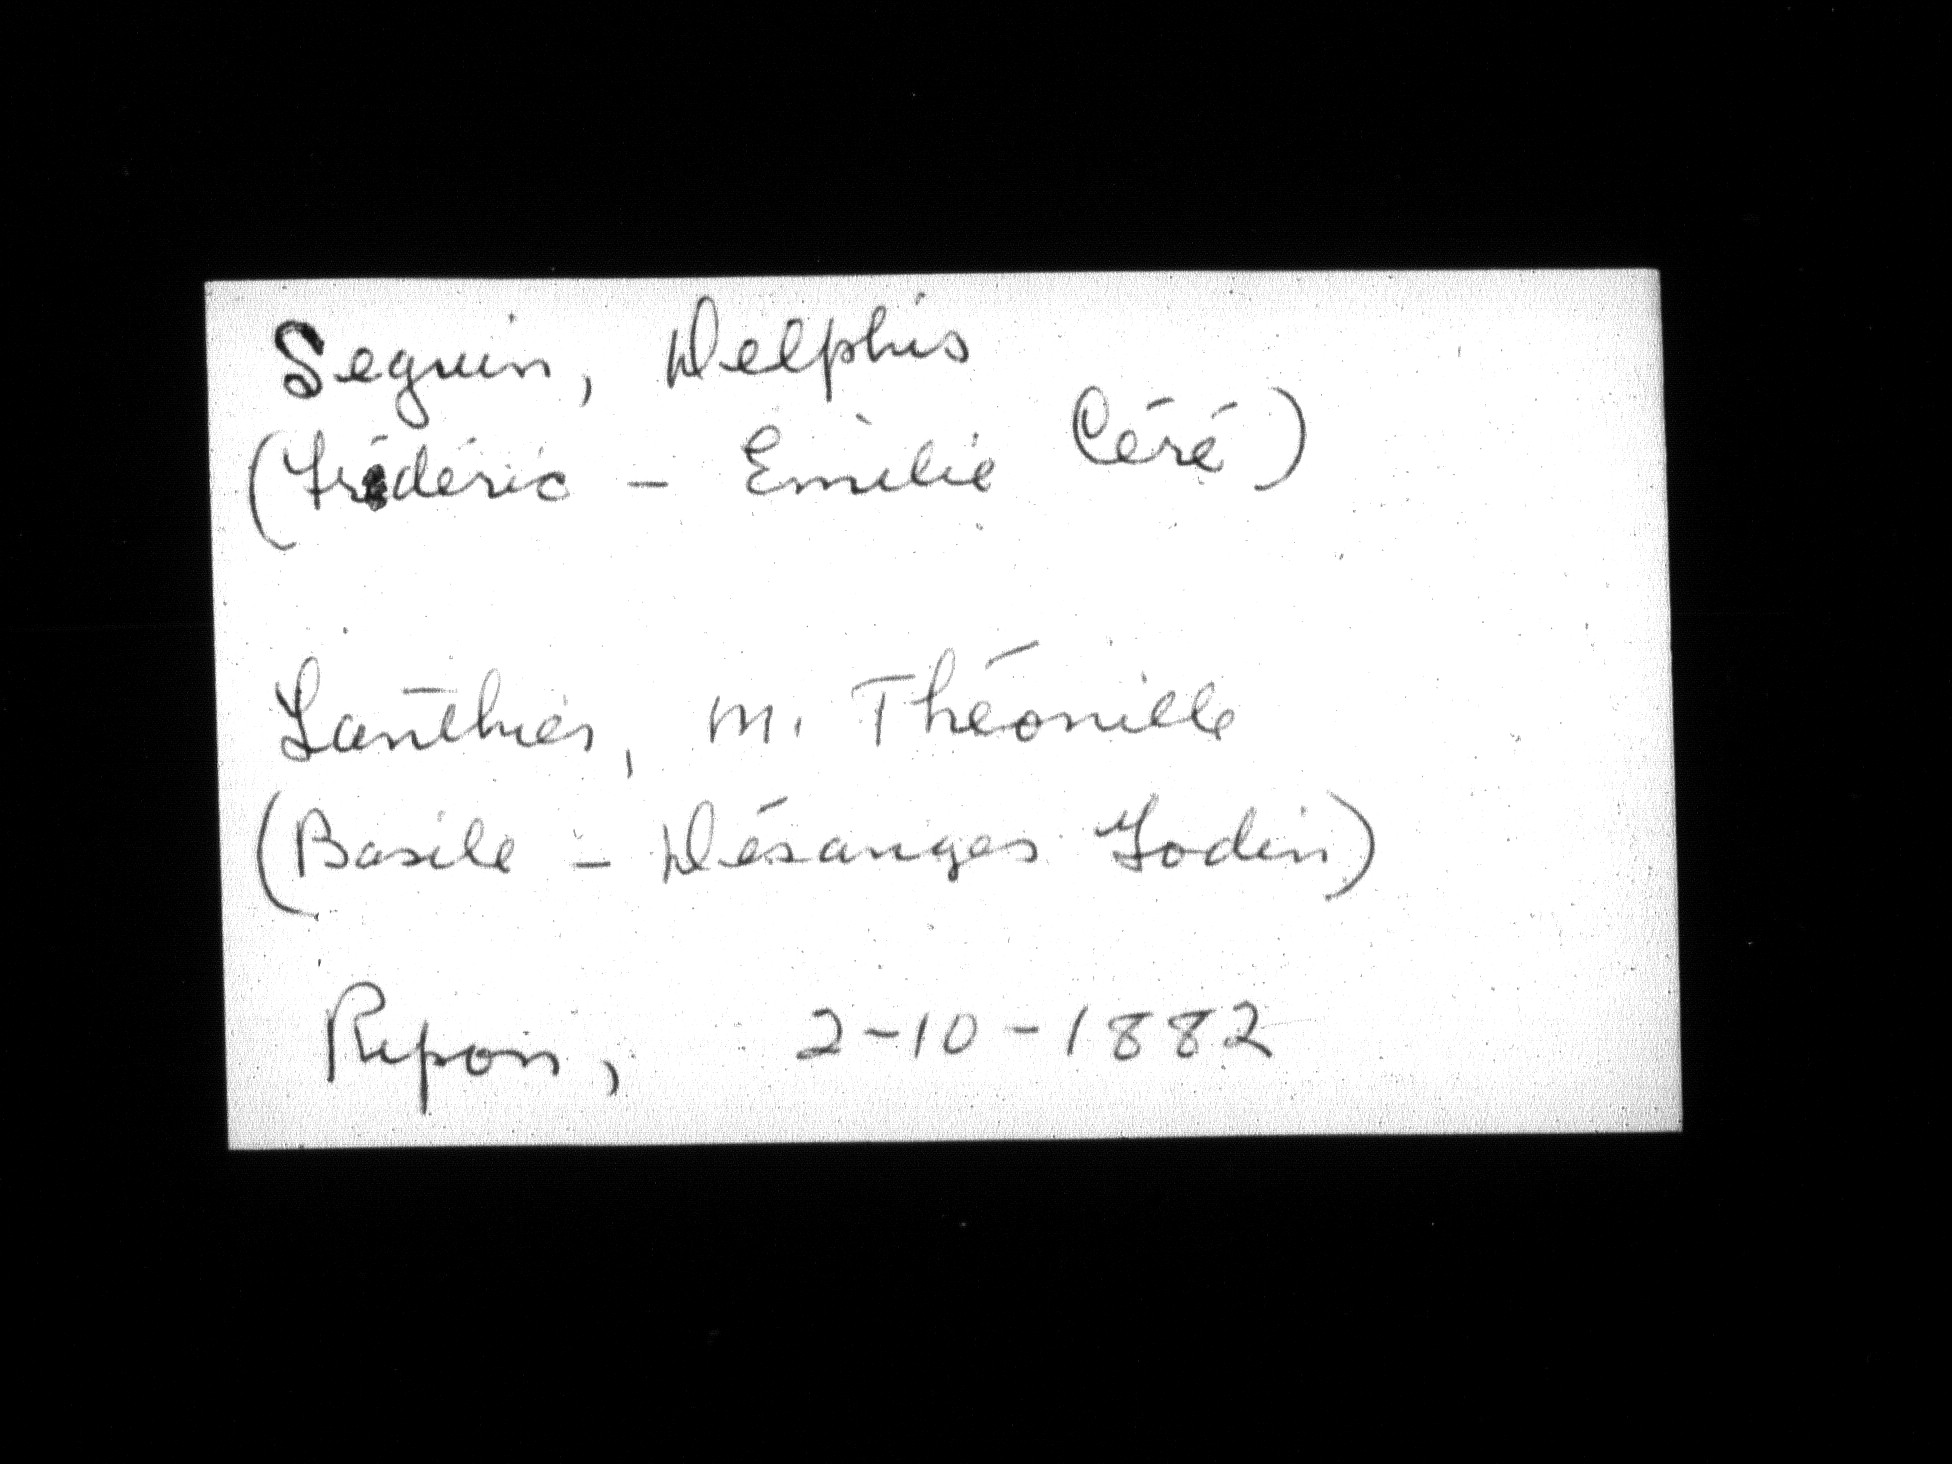 Seguin, Delphis
(Frédéric - Emilie Céré)
Lanthier, M. Théonille
(Basile - Désanges Godin)
Ripon, 2-10-1882